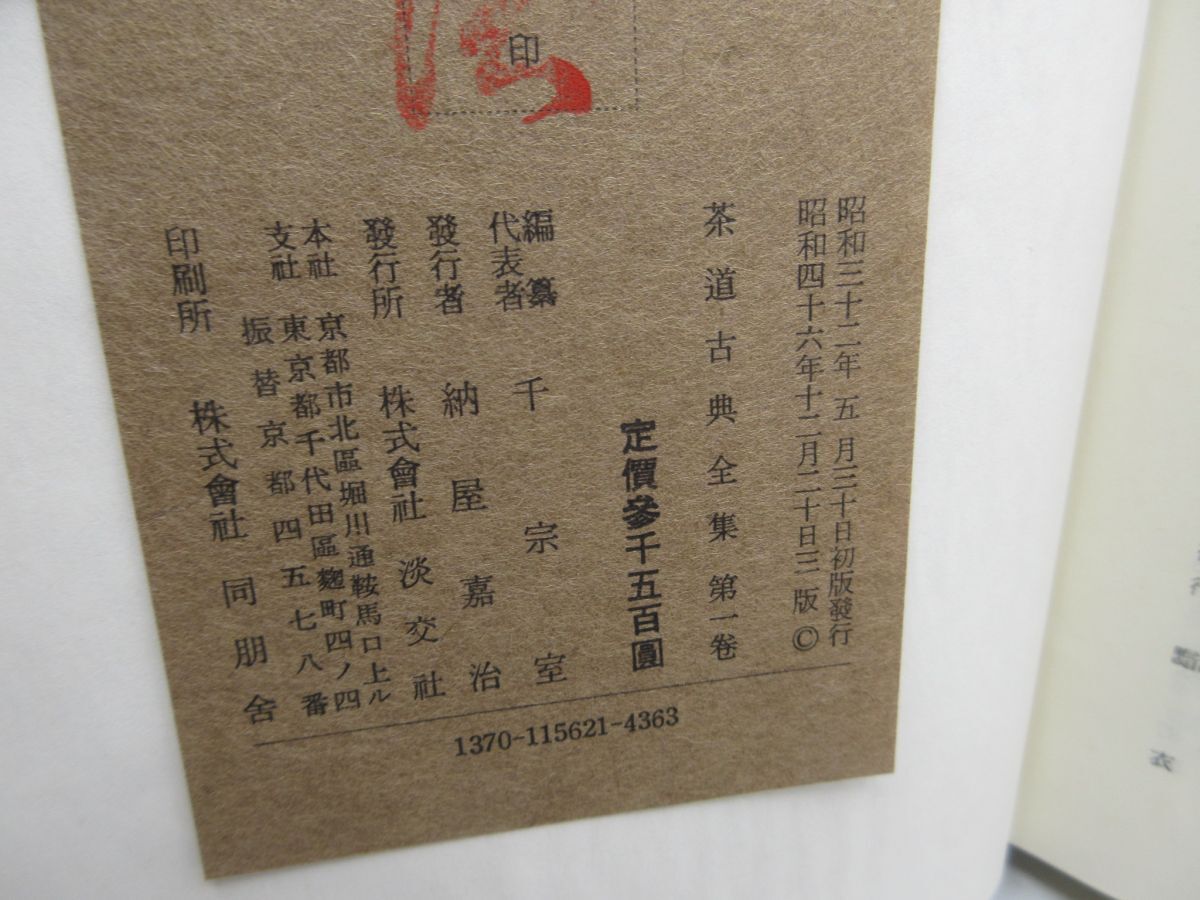 印
昭和三十二年五月三十日初版發行
昭和四十六年十二月二十日三版©
茶道古典全集 第一卷
定價參千五百圓
編纂
代表者 千宗室
發行者 納屋嘉治
發行所 株式會社 淡交社
本社 京都市北區堀川通鞍馬口上ル
支社 東京都千代田區麴町四ノ四
振替京都四五七八番
印刷所 株式會社 同朋舍
1370-115621-4363
衣